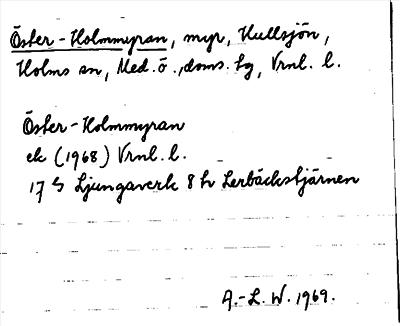 Öster-Holmmyran, myr, Hullsjön,
Holms sn, Med.ö.,doms. tg, Vrnl. l.
Öster-Holmmyran
ek (1968) Vrnl. l.
17 S Ljungaverk 8 h Lerbäckstjärnen
A.-L. W. 1969.